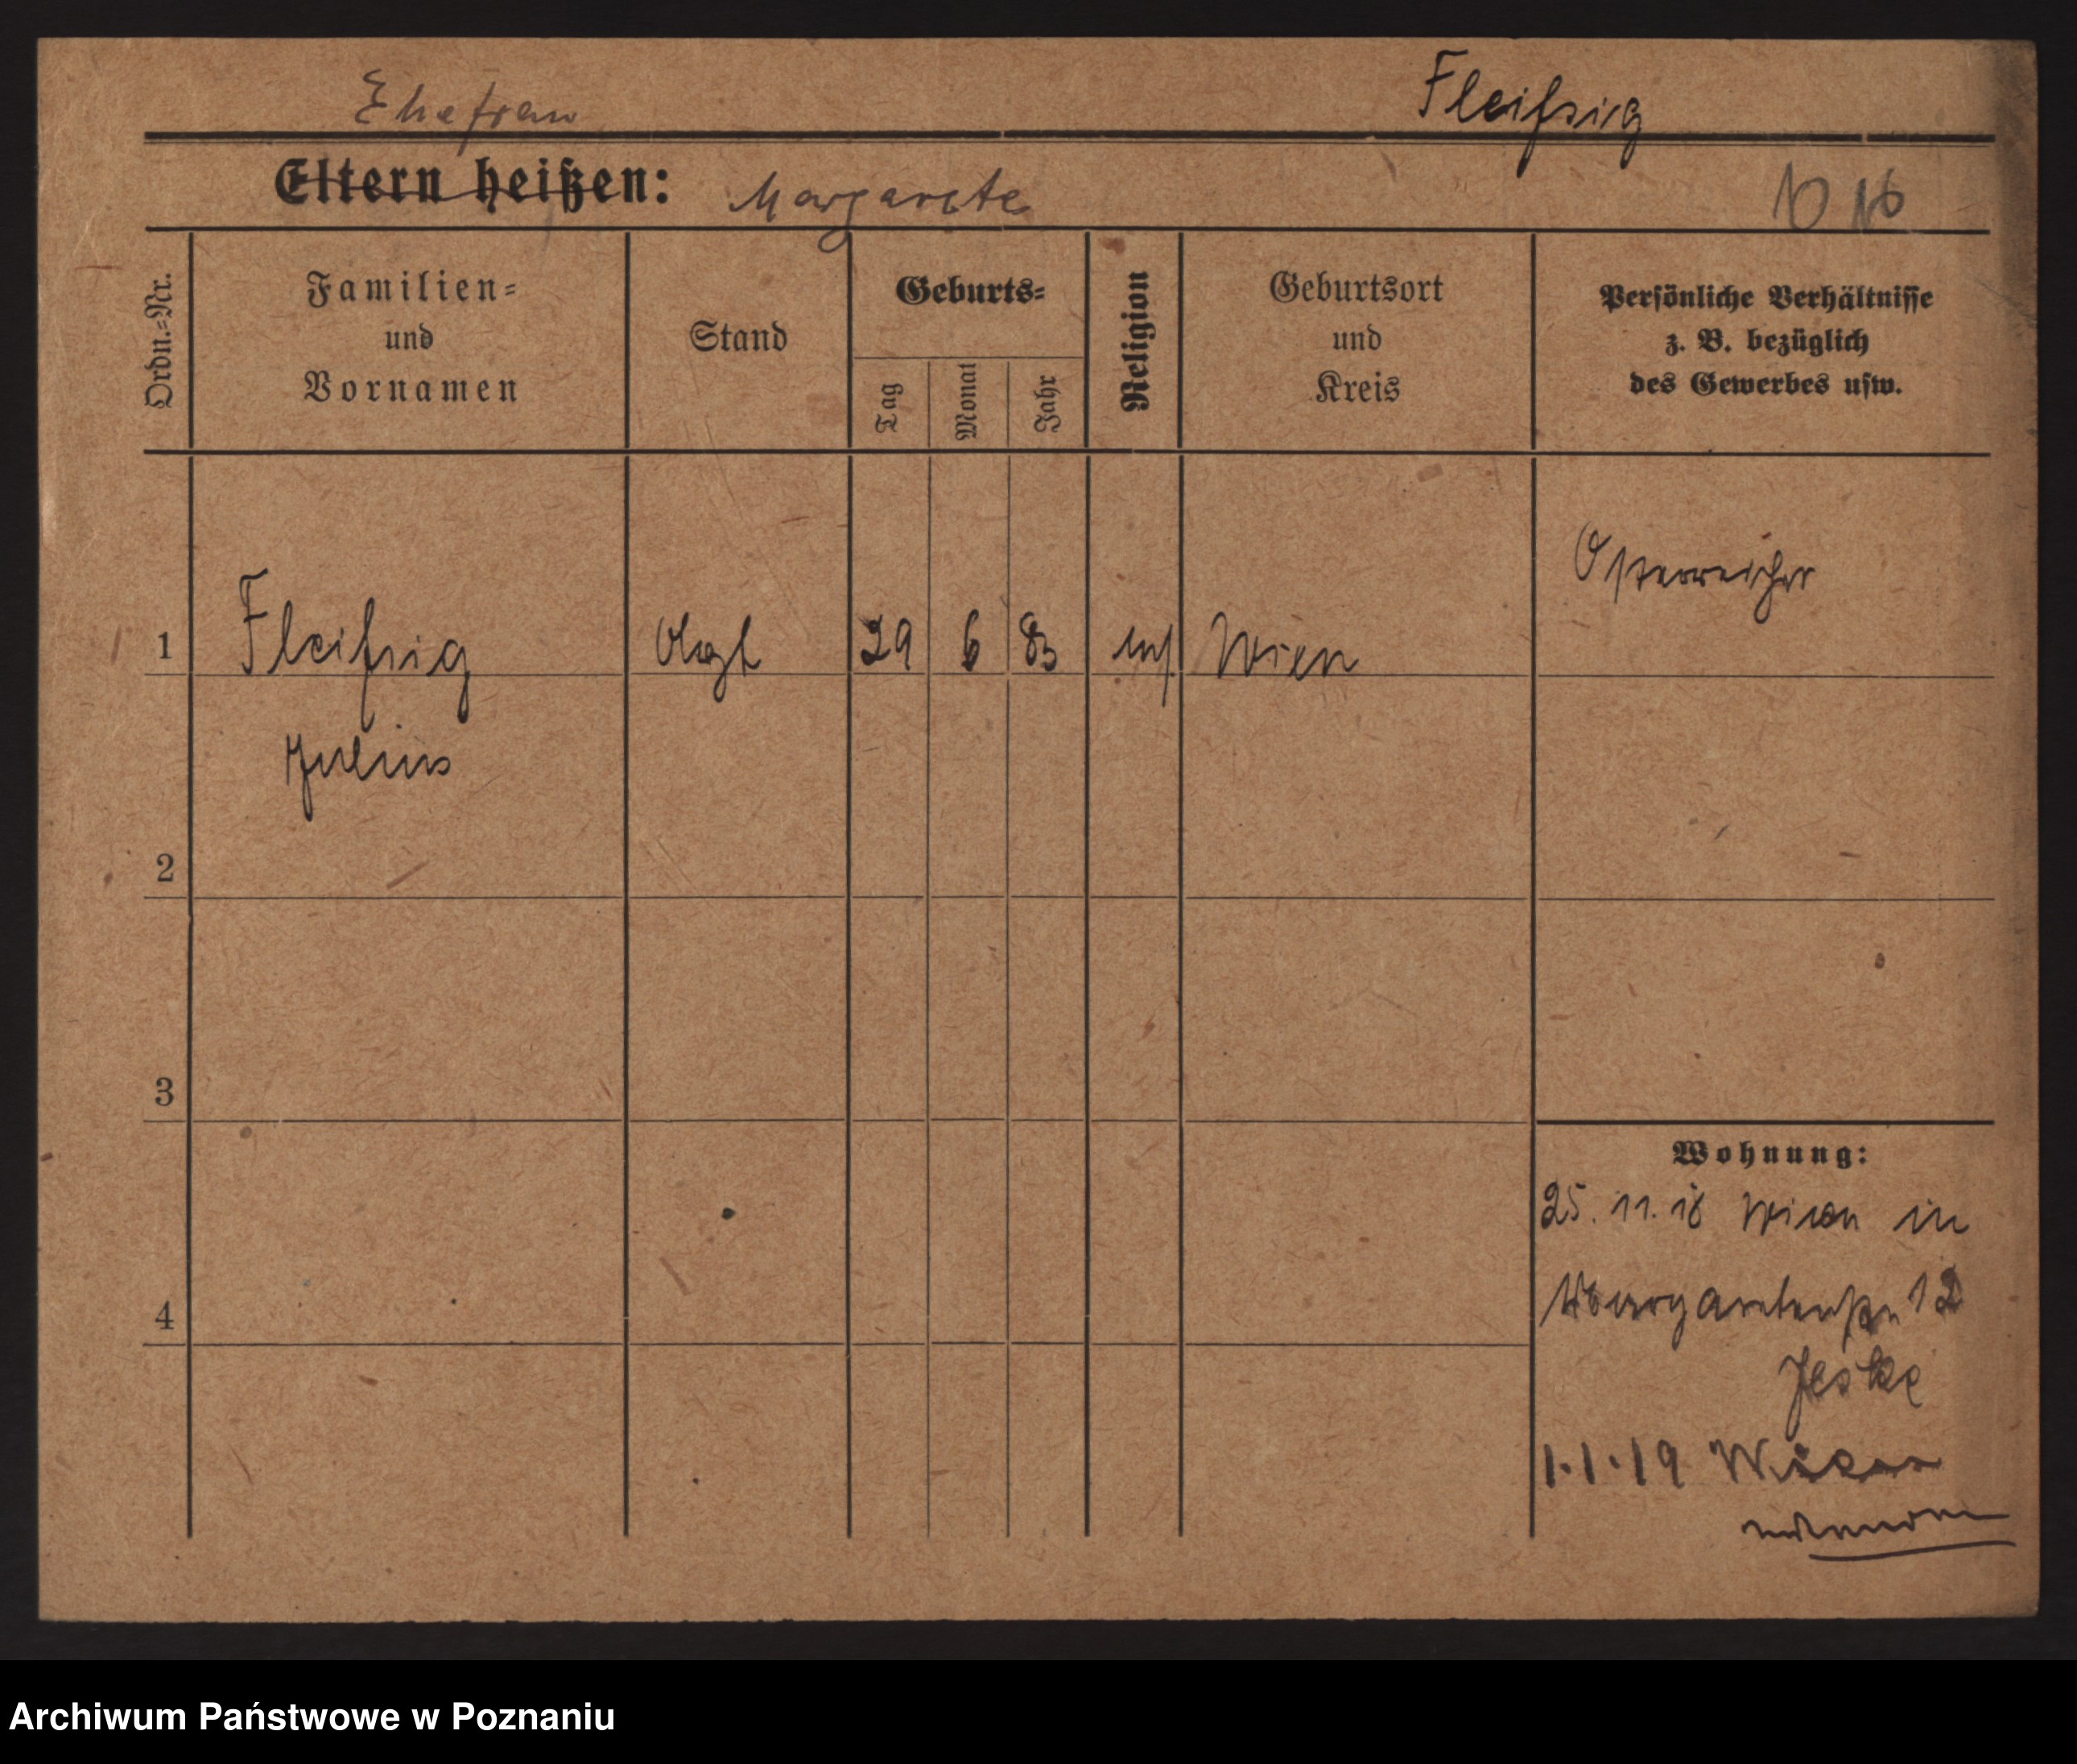 Ehefrau
Fleißsig
Eltern heißen: Margarete
Ordn.=Nr.
Familien=
und
Vornamen
Stand
Geburts=
Tag
Monat
Jahr
Religion
Geburtsort
und
Kreis
Persönliche Verhältnisse
z. B. bezüglich
des Gewerbes usw.
Österreicher
1 Fleißsig 29 6 83 Wien
Julius
2
3
Wohnung:
25. 11. 18 Wien in
12
4
Jeske
1.1.19 Wien
Archiwum Państwowe w Poznaniu